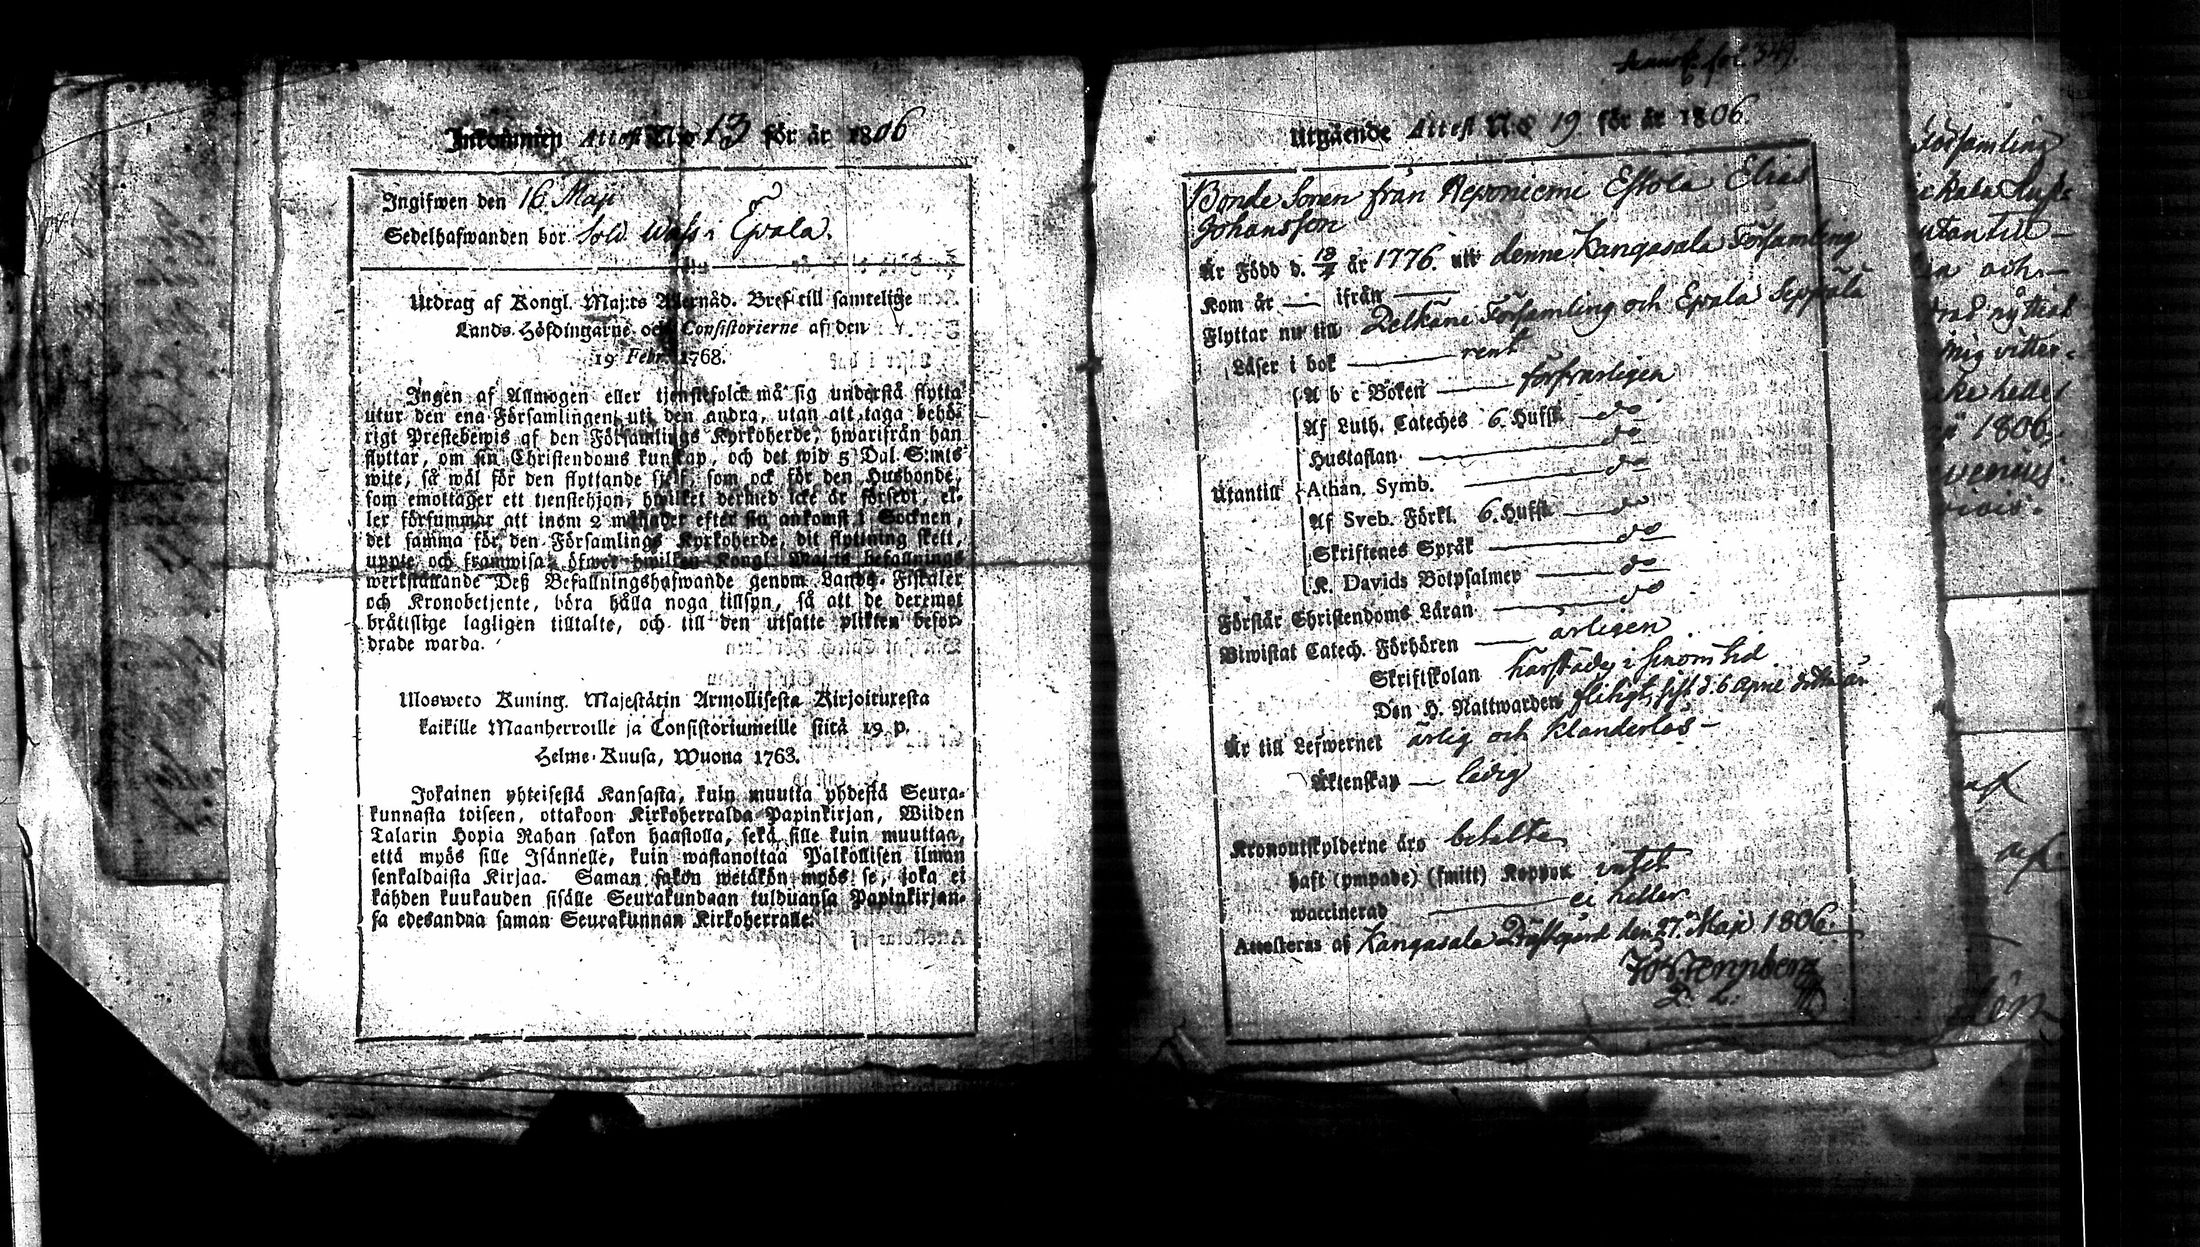 Inkommen Attest No 13 för år 1806
Ingifwen den 16 Maji
Sedelhafwanden bor Sold. i Epala.
Utdrag af Kongl. Maj:ts Allernåd. Bref till samtelige
Lands-Höfdingarne och Consistorierne af den
19 Febr. 1768.
Ingen af Allmogen eller tjenstefolck må sig understå flytta
utur den ena Församlingen uti den andra, utan att taga behö-
rigt Prestebewis af den Församlings Kyrkoherde, hwarifrån han
flyttar, om sin Christendoms kunskap, och det wid 5 Dal. S:mts
wite, så wäl för den flyttande sjelf, som ock för den Husbonde,
som emottager ett tienstehjon, hwilket dermed icke är försedt, el-
ler försummar att inom 2 månader efter sin ankomst i Socknen,
det samma för den Församlings Kyrkoherde, dit flyttning skett,
uppte och framwisa; öfwer hwilken Kongl. Maj:ts befallnings
werkställande Deß Befallningshafwande genom Lands-Fiskaler
och Kronobetjente, böra hålla noga tillsyn, så att de deremot
bråttslige lagligen tilltalte, och till den utsatte plikten befor-
drade warda.
Ulosweto Kuning. Majestätin Armollisesta Kirjoituxesta
kaikille Maanherroille ja Consistoriumeille siitä 19 p.
Helme-Kuusa, Wuona 1763.
Jokainen yhteisestä Kansasta, kuin muutta yhdestä Seura-
kunnasta toiseen, ottakoon Kirkoherralda Papinkirjan, Wiiden
Talarin Hopia Rahan sakon haastolla, sekä sille kuin muuttaa,
että myös sille Isännelle, kuin wastanottaa Palkollisen ilman
senkaldaista Kirjaa. Saman sakon wetäkön myös se, joka ei
kahden kuukauden sisälle Seurakundaan tulduansa Papinkirjan-
sa edesandaa saman Seurakunnan Kirkoherralle.
fol 349.
Utgående Attest No 19 för år 1806
Bonde Sonen från Reponiemi Eskola Elias
Johansson
Är Född d. 13/4 år 1776. uti denne Kangasala Församling
Kom år — ifrån —
Flyttar nu till Pelkäne Församling och Epala Seppälä
Läser i bok — rent
A b c Boken — försvarligen
Af Luth. Cateches 6. Hufst. — do
Hustaflan — do
Utantill Athan. Symb. — do
Af Sveb. Förkl. 6. Hufst. — do
Skriftenes Språk — do
K. Davids Botpsalmer — do
Förstår Christendoms Läran — do
Biwistat Catech. Förhören — årligen
Skriftskolan härstädes i sinom tid
Den H. Nattwarden flitigt, sist d. 6 April detta år
Är till Lefwernet ärlig och klanderlös —
Äktenskap — ledig
Kronoutskylderne äro betalte
haft (ympade) (smitt) Koppor intet
waccinerad — ei heller
Attesteras af Kangasala Prästgård den 27 Maji 1806. —
Församling
utan till —
och —
1806.
af